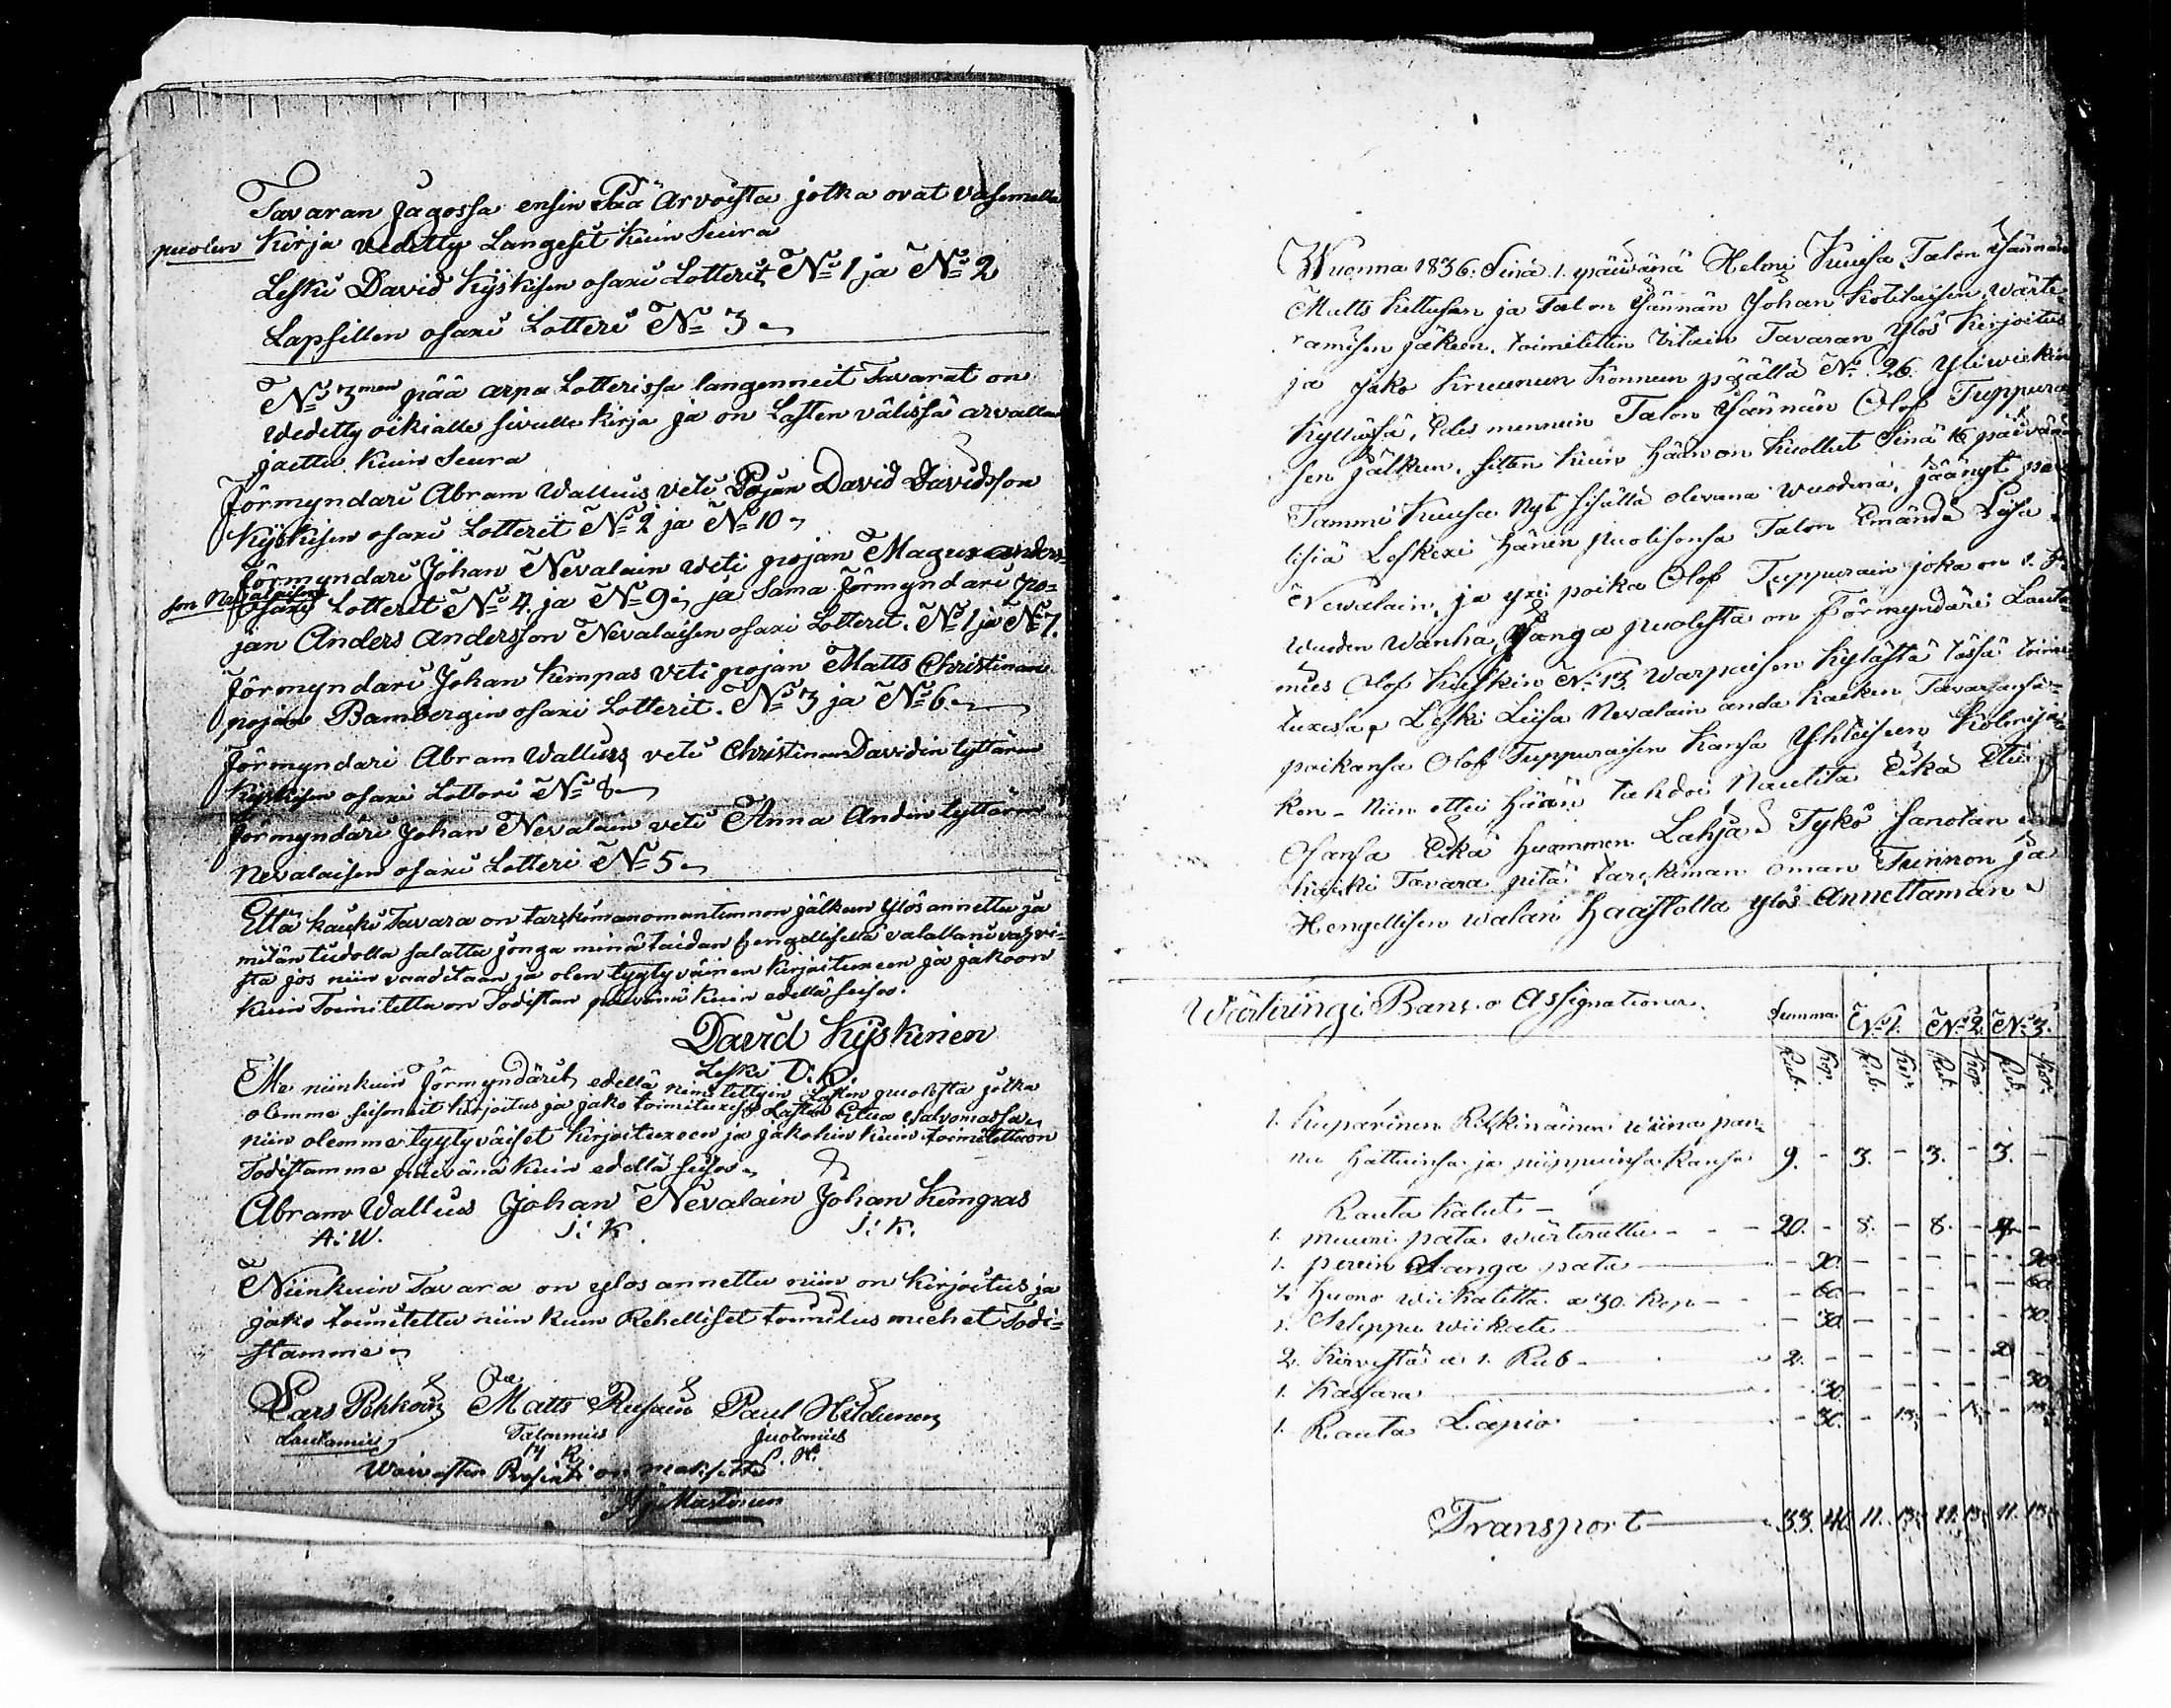 Tavaran Jagossa ensin Pää Arvoista jotka ovat vasemella
puolen Kirja vedetty Langesit kuin Seura
Leski David Kyskisen osaxi Lotterit № 1 ja № 2
Lapsillen osaxi Lotteri № 3
№ 3men pää arpa Lotterissa langenneit Tavarat on
Wedetty oikialle sivulle kirja ja on Lasten välissä arvalla
jaettu kuin Seura
Förmyndari Abram Wallius veti Pojan David Davidsson
Kyskisen osaxi Lotterit № 2 ja № 10
Förmyndari Johan Nevalain veti pojan Magus anders-
son Nevalaisen osaxi Lotterit № 4. ja № 9 ja sama Förmyndari po-
jan Anders Andersson Nevalaisen osaxi Lotterit. № 1 ja № 7.
Förmyndari Johan Kempas veti pojan Matts Christinan
pojan Bambergin osaxi Lotterit. № 3 ja № 6.
Förmyndari Abram Wallius veti Christinan Davidin tyttären
Kyskisen osaxi Lotteri № 8
Förmyndari Johan Nevalain veti Anna Andin tyttären
Nevalaisen osaxi Lotteri № 5
Että kaicki Tavara on tarckiman oman tunnon jälkeen ylös annettu ja
mitän tiedolla salattu jonga minä taidan hengellisellä valallani vahvi-
sta jos niin vaaditaan ja olen tyytyväinen kirjoituxeen ja jakoon
kuin Toimitettu on Todistan päivänä kuin edellä seisoo.
David Kyskinen
Leski D: K
Me niinkuin Förmyndärit edellä nimitettyin Lasten puolesta jotka
olemme seisoneit kirjoitus ja jako toimituxesa Lasten Etua valvomassa
niin olemme tyytyväiset kirjoituxeen ja jakohin kuin toimitettu on
Todistamme päivänä kuin edellä seisoo
Abram Wallius Johan Nevalain Johan Kempas
A: W. J: K. J: K.
Niinkuin Tavara on ylos annettu niin on kirjoitus ja
jako toimitettu niin kuin Rehelliset toimitus miehet Todi-
stamme
Lars Pohkoin Matts Rusain Paul Heldunen
Lautamies Talonmies Juolomies
M R P. H.
Waivasten Prosenti on maksettu
Wuonna 1836. Sinä 1. päivänä Helmi Kuusa, Talon Isännän
Matts Kettusen ja Talon Isännän Johan Kotilaisen, wärte-
ramisen jäkeen, toimitettin Irtain Tavaran Ylös Kirjoitus
ja Jako Kruunun Konnun päällä № 26. Yliwiekin
Kyllässä, Edes mennein Talon Isännän Olof Tuppurai-
sen jälkeen, sitten kuin Hään on kuollut Sinä 16 päivänä
Tammi Kuusa Nyt sisällä olevana wuodena, jäänyt pe-
lisiä Leskexi hänen puolisonsa Talon Emändä Liisa
Nevalain, ja yxi poika Olof Tuppurain joka on 1. ½
wuoden Wanha, Janga puolesta on Förmyndäri Lauta
mies Olof Kieskin № 13 Warpaisen Kylästä tässä toimi-
tuxessa, Leski Liisa Nevalain anda kaiken Tavaransa
poikansa Olof Tuppuraisen kansa Yhteiseen kolmeja-
kon - Niin ettei Hään tahdoi Nautita Eikä Etu
Osansa Eikä Huommen Lahja, Tykö sanotan
kaicki Tavara pitä tarckiman oman Tunnon ja
Hengellisen walan haastolla ylös Annettaman
Wärteringi Banco Assignationer. Summa № 1. № 2. № 3.
Rub. Kop. Rub. Kop. Rub. Kop. Rub. Kop.
1. Kuparinen Rickinäinen wiina pan-
nu hattuinsa ja piippuinsa kansa 9. - 3. - 3. - 3. -
Rauta kalut -
1. muuri pata wärterattu - - - 20. - 8. - 8. - 4 -
1. pieni Sanga pata - 20 - - - - - 20
2. Huono wiikatetta a 30. Kop - - 60 - - - - - 60
1. Sileppu wiikate - 30 - - - - - 30.
2. Kirvestä a 1. Rub - 2. - - - - - 2 -
1. Kassara - 30 - - - - - 30
1. Rauta Lapio - 30. - 13. - 13. - 13.
Transport 33. 40 11. 13. 11. 13. 11. 13.